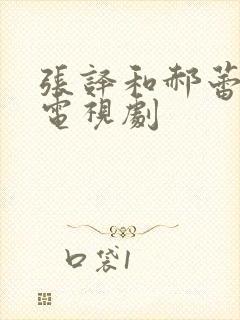 張譯和郝蕾
電視劇
口袋1